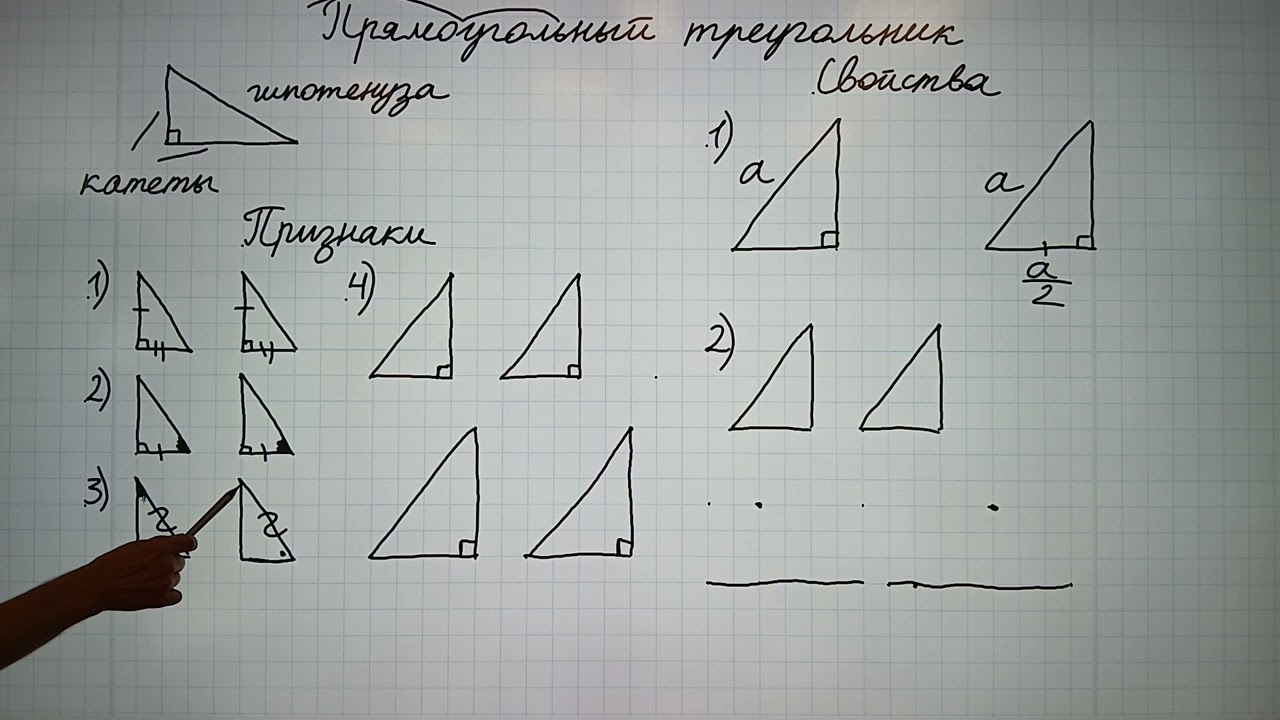 Прямоугольный треугольник
гипотенуза
катеты
Признаки
1)
2)
3)
4)
Свойства
1)
a
a
a/2
2)